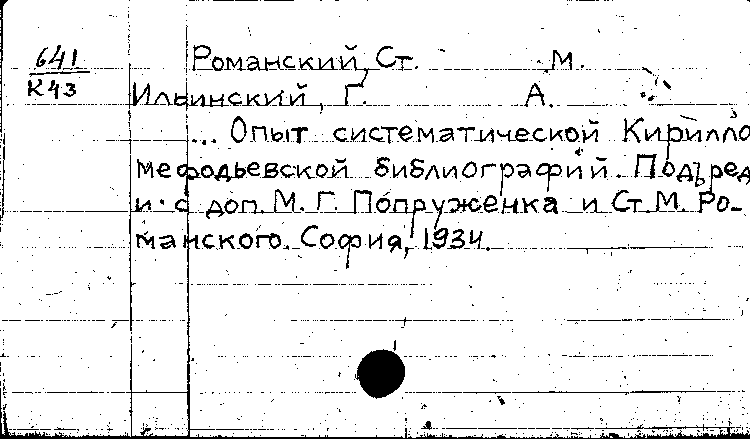 641
К43
Романский, Ст. М.
Ильинский, Г. А.
... Опыт систематической Кирилло
мефодьевской библиографий. Подъ ред
и с доп. М. Г. Попруженка и Ст. М. Ро-
манского. София, 1934.